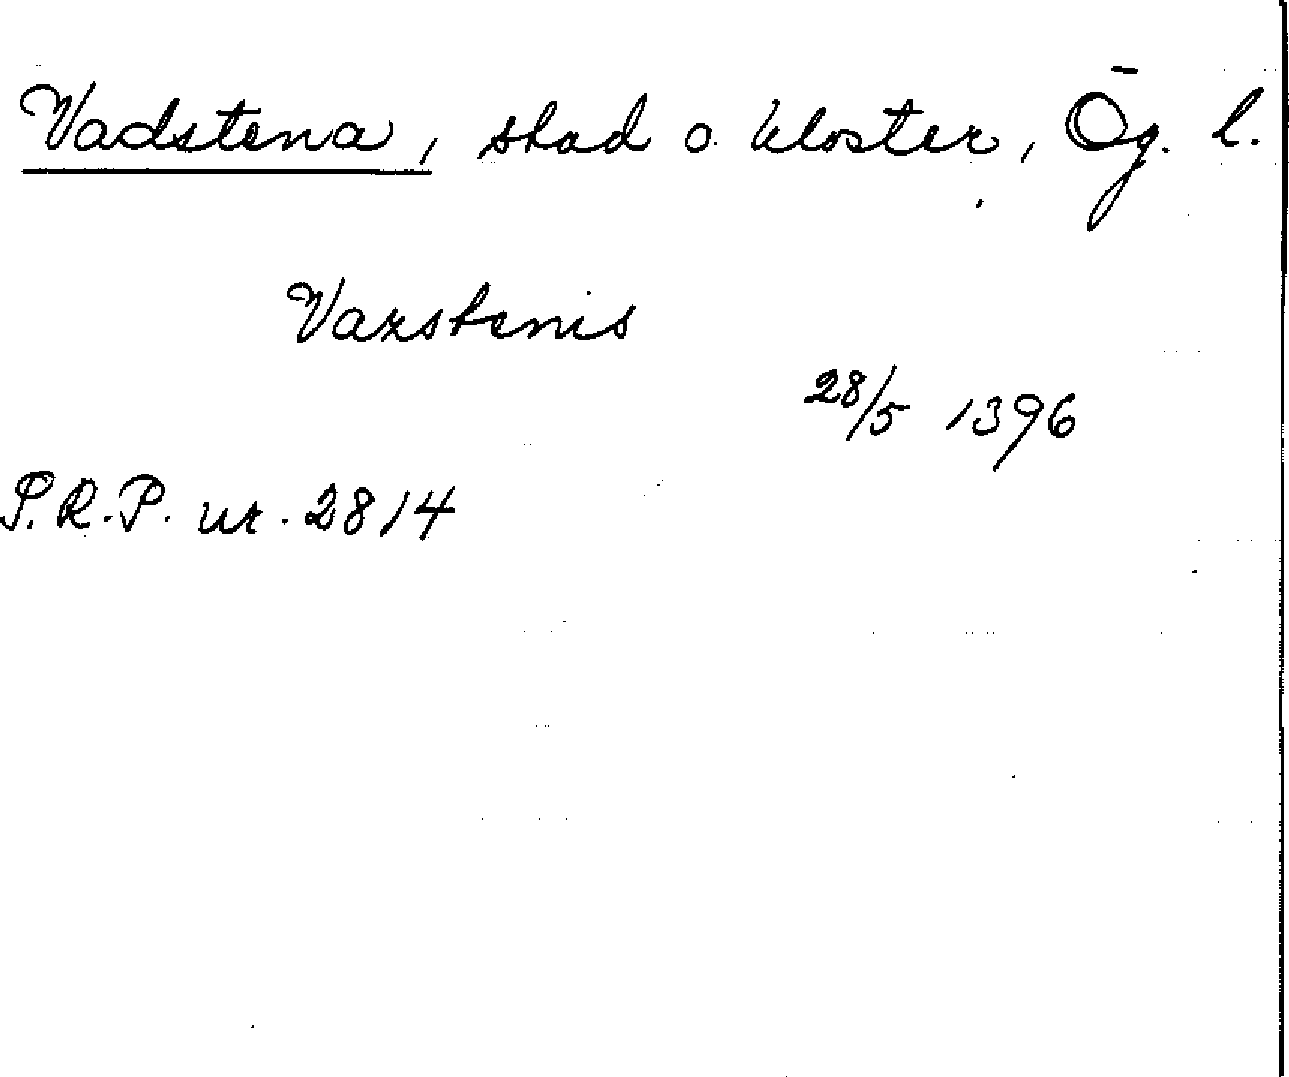 Vadstena, stad o. kloster, Ög. l.
Vazstenis
28/5 1396
S.R.P. nr. 2814